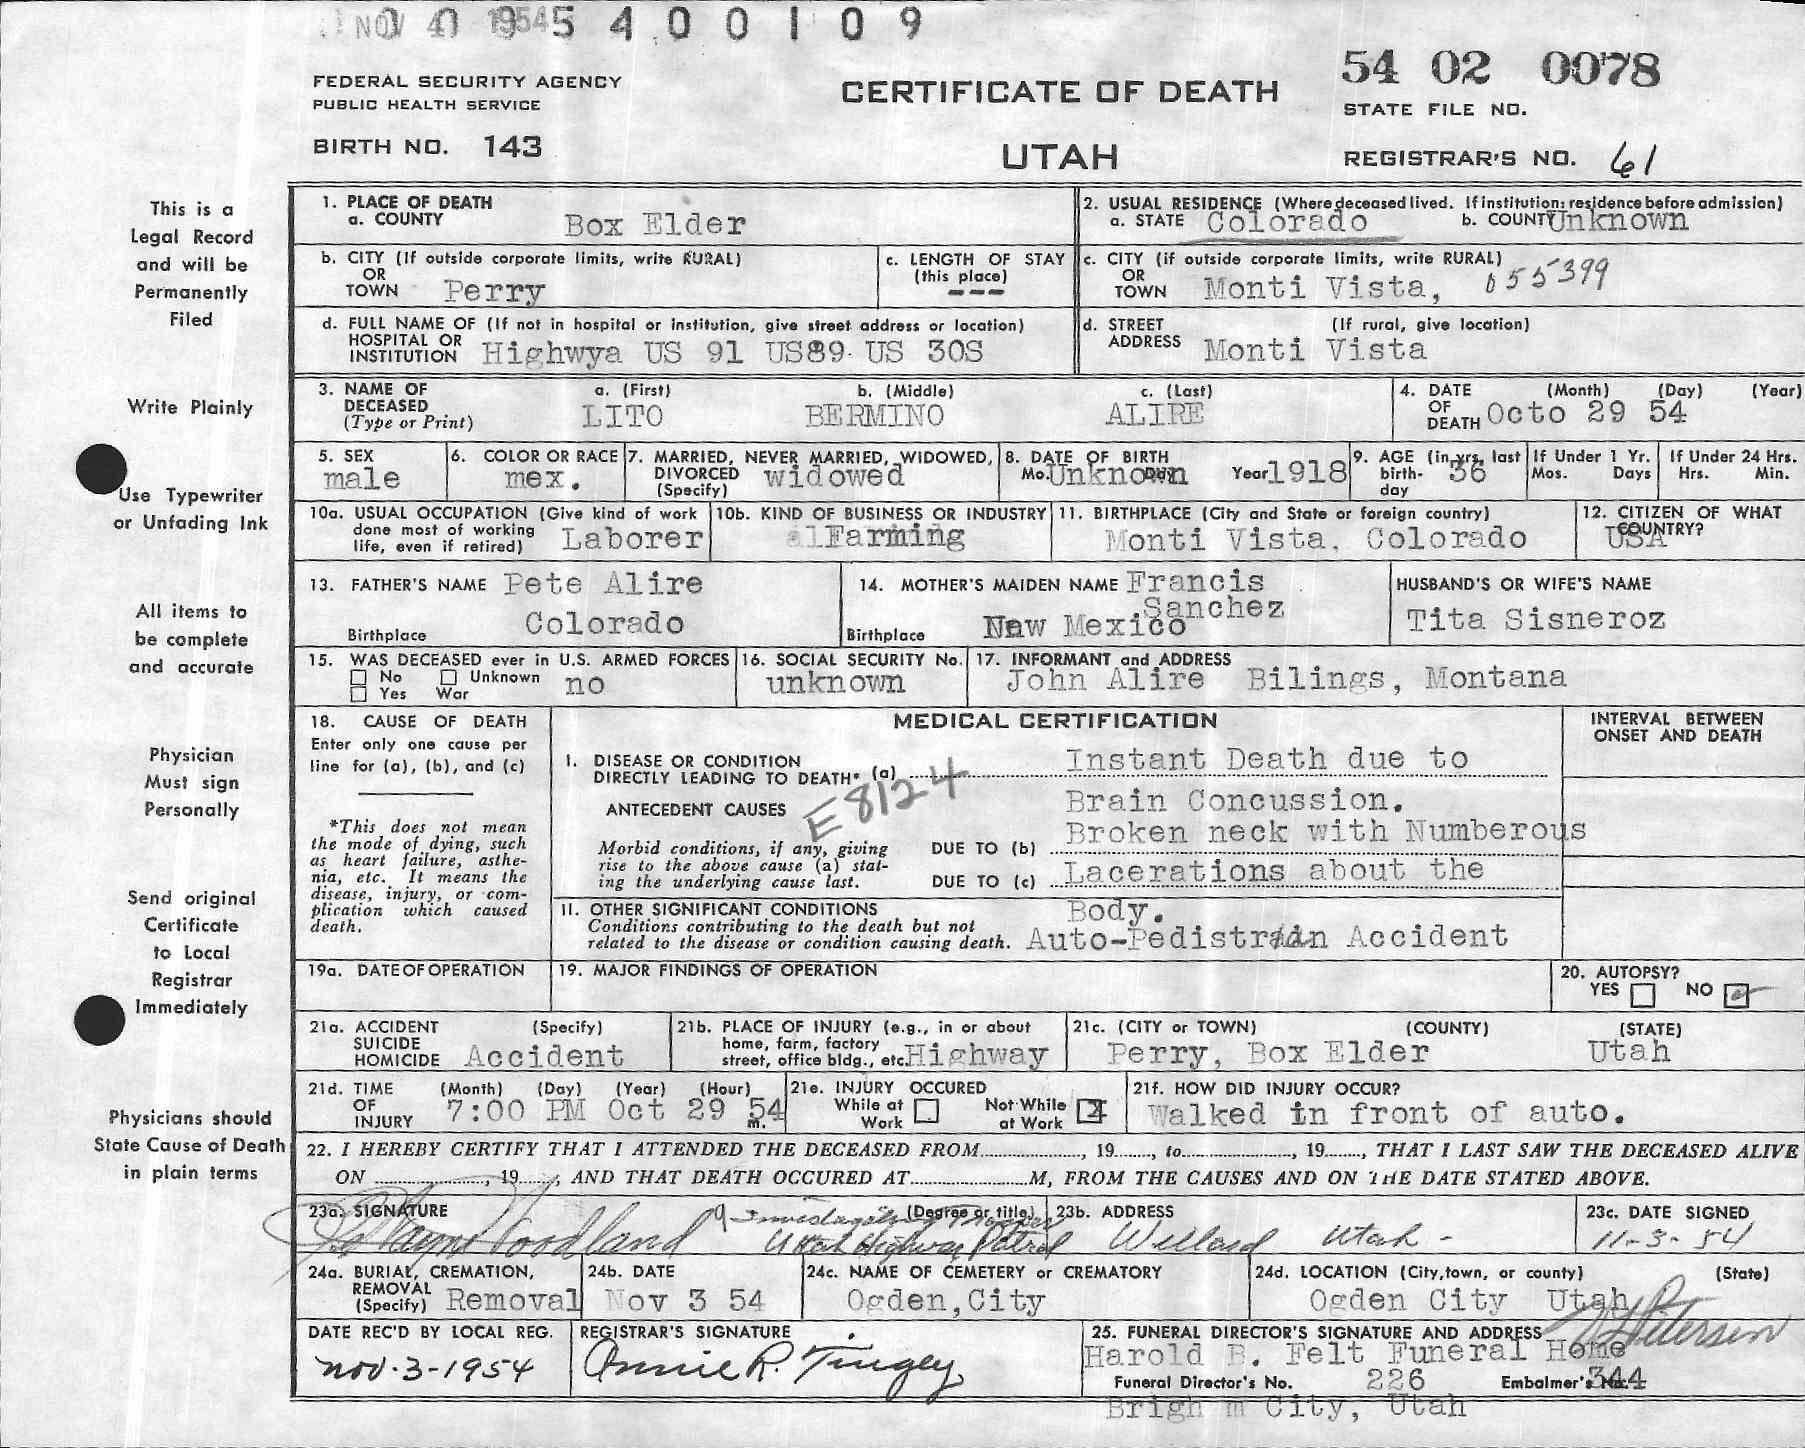 NOV 4 1954 5 4 0 0 1 0 9
54 02 0078
FEDERAL SECURITY AGENCY
PUBLIC HEALTH SERVICE
CERTIFICATE OF DEATH
STATE FILE NO.
BIRTH NO. 143
UTAH
REGISTRAR'S NO. 61
This is a
Legal Record
and will be
Permanently
Filed
Write Plainly
Use Typewriter
or Unfading Ink
All items to
be complete
and accurate
Physician
Must sign
Personally
Send original
Certificate
to Local
Registrar
Immediately
Physicians should
State Cause of Death
in plain terms
1. PLACE OF DEATH
a. COUNTY Box Elder
2. USUAL RESIDENCE (Where deceased lived. If institution: residence before admission)
a. STATE Colorado b. COUNTY Unknown
b. CITY (If outside corporate limits, write RURAL)
OR
TOWN Perry
c. LENGTH OF STAY
(this place)
---
c. CITY (if outside corporate limits, write RURAL)
OR
TOWN Monti Vista, 055399
d. FULL NAME OF (If not in hospital or institution, give street address or location)
HOSPITAL OR
INSTITUTION Highwya US 91 US89 US 30S
d. STREET (If rural, give location)
ADDRESS Monti Vista
3. NAME OF
DECEASED
(Type or Print)
a. (First) b. (Middle) c. (Last)
LITO BERMINO ALIRE
4. DATE (Month) (Day) (Year)
OF
DEATH Octo 29 54
5. SEX
male
6. COLOR OR RACE
mex.
7. MARRIED, NEVER MARRIED, WIDOWED,
DIVORCED widowed
(Specify)
8. DATE OF BIRTH
Mo. Unknown Year 1918
9. AGE (in yrs. last
birth-
day 36
If Under 1 Yr.
Mos. Days
If Under 24 Hrs.
Hrs. Min.
10a. USUAL OCCUPATION (Give kind of work
done most of working
life, even if retired) Laborer
10b. KIND OF BUSINESS OR INDUSTRY
Farming
11. BIRTHPLACE (City and State or foreign country)
Monti Vista. Colorado
12. CITIZEN OF WHAT
COUNTRY?
USA
13. FATHER'S NAME Pete Alire
Birthplace Colorado
14. MOTHER'S MAIDEN NAME Francis
Sanchez
Birthplace New Mexico
HUSBAND'S OR WIFE'S NAME
Tita Sisneroz
15. WAS DECEASED ever in U.S. ARMED FORCES
No Unknown no
Yes War
16. SOCIAL SECURITY No.
unknown
17. INFORMANT and ADDRESS
John Alire Bilings, Montana
18. CAUSE OF DEATH
Enter only one cause per
line for (a), (b), and (c)
*This does not mean
the mode of dying, such
as heart failure, asthe-
nia, etc. It means the
disease, injury, or com-
plication which caused
death.
MEDICAL CERTIFICATION
INTERVAL BETWEEN
ONSET AND DEATH
I. DISEASE OR CONDITION
DIRECTLY LEADING TO DEATH* (a) Instant Death due to
ANTECEDENT CAUSES Brain Concussion.
E8124
Morbid conditions, if any, giving
rise to the above cause (a) stat-
ing the underlying cause last.
DUE TO (b) Broken neck with Numberous
DUE TO (c) Lacerations about the
II. OTHER SIGNIFICANT CONDITIONS Body.
Conditions contributing to the death but not
related to the disease or condition causing death. Auto-Pedistrian Accident
19a. DATE OF OPERATION
19. MAJOR FINDINGS OF OPERATION
20. AUTOPSY?
YES NO
21a. ACCIDENT (Specify)
SUICIDE
HOMICIDE Accident
21b. PLACE OF INJURY (e.g., in or about
home, farm, factory
street, office bldg., etc. Highway
21c. (CITY or TOWN) (COUNTY) (STATE)
Perry, Box Elder Utah
21d. TIME (Month) (Day) (Year) (Hour)
OF
INJURY 7:00 PM Oct 29 54 m.
21e. INJURY OCCURED
While at Work Not While at Work
21f. HOW DID INJURY OCCUR?
Walked in front of auto.
22. I HEREBY CERTIFY THAT I ATTENDED THE DECEASED FROM, 19, to, 19, THAT I LAST SAW THE DECEASED ALIVE
ON, 19, AND THAT DEATH OCCURED AT M, FROM THE CAUSES AND ON THE DATE STATED ABOVE.
23a. SIGNATURE (Degree or title)
Wayne Woodland Investigating Trooper
Utah Highway Patrol
23b. ADDRESS
Willard Utah
23c. DATE SIGNED
11-3-54
24a. BURIAL, CREMATION,
REMOVAL
(Specify) Removal
24b. DATE
Nov 3 54
24c. NAME OF CEMETERY or CREMATORY
Ogden, City
24d. LOCATION (City, town, or county) (State)
Ogden City Utah
DATE REC'D BY LOCAL REG.
Nov. 3-1954
REGISTRAR'S SIGNATURE
Annie R. Tingey
25. FUNERAL DIRECTOR'S SIGNATURE AND ADDRESS Petersen
Harold B. Felt Funeral Home
Funeral Director's No. 226 Embalmer's No. 344
Brigh m City, Utah